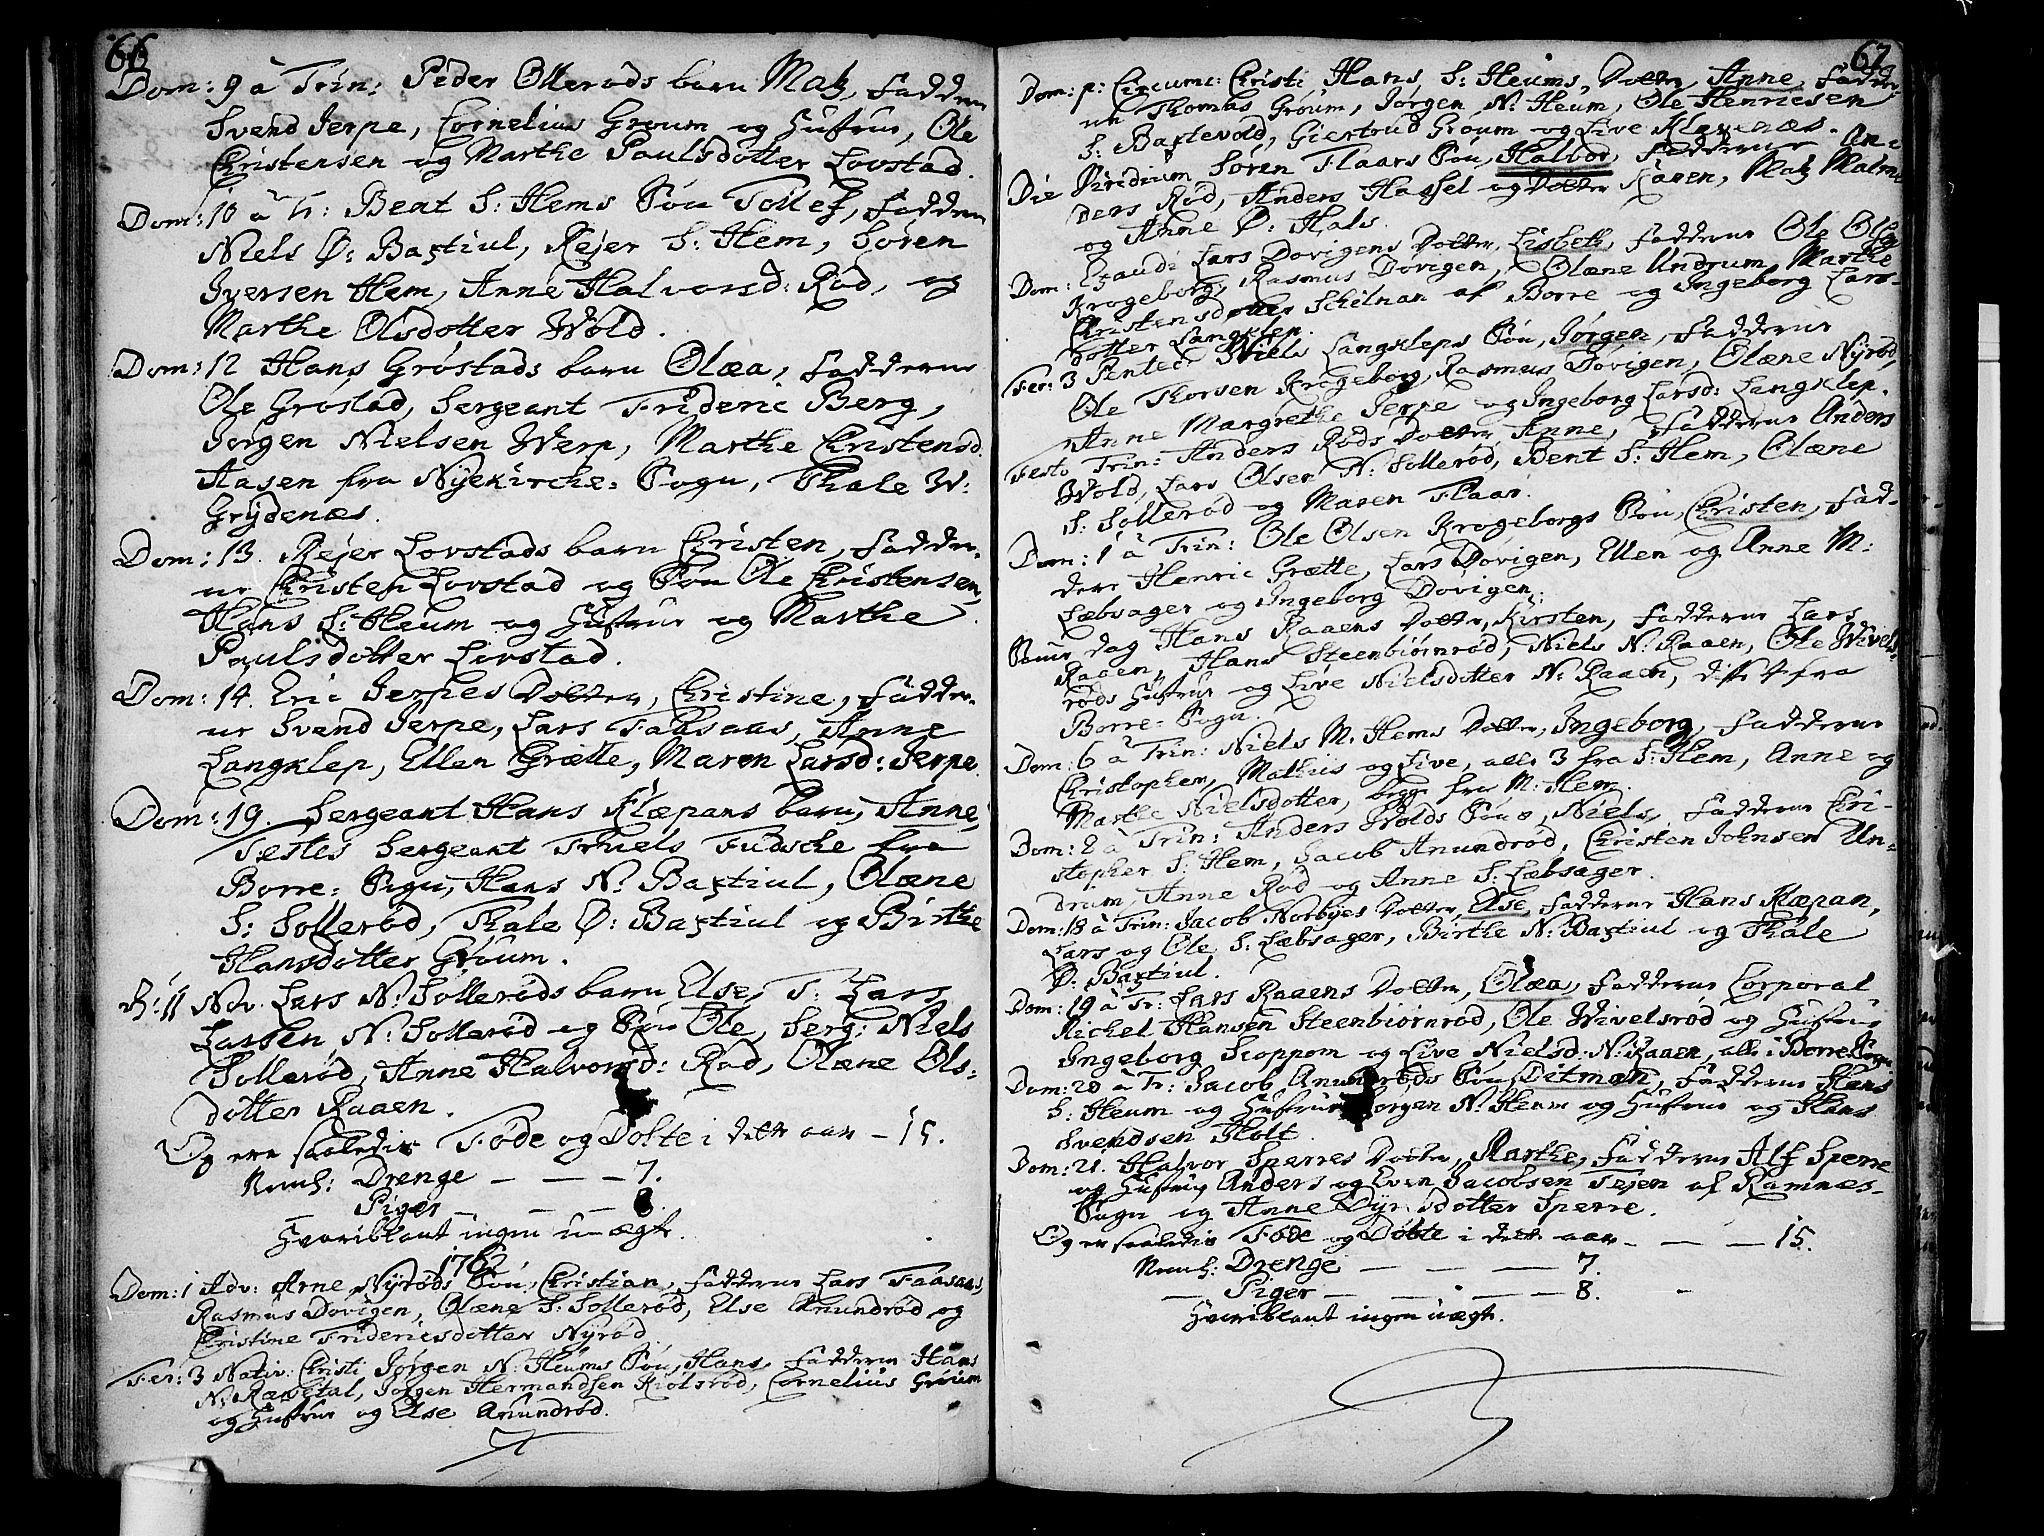 66
Dom: 9 à Trin: Peder Ollerøds barn Matz, Faddern
Svend Jerpe, Cornelius Grøum og Hustrue, Ole
Christensen og Marthe Paulsdotter Lovstad.
Dom: 10 à Tr: Bent S: Hems Søn Tollef, Faddern
Niels Ø: Bastiul, Rejer S: Hem, Søren
Iversen Hem, Anne Halvorsd: Rød, og
Marthe Olsdotter Wold.
Dom: 12 Hans Grøstads barn Olæa, Fadderne
Ole Grøstad, Sergeant Frideric Berg,
Jørgen Nielsen Werp, Marthe Christensd.
Aasen fra Nyekirche-Sogn, Thale W:
Grydenæs.
Dom: 13. Rejer Lovstads barn Christen, Fadder-
ne Christen Lovstad og Søn Ole Christensen,
Hans S: Heum og Hustrue og Marthe
Paulsdotter Lovstad.
Dom: 14. Eric Jerpes Dotter, Christine, Fadder-
ne Svend Jerpe, Lars Faasaas, Anne
Langklep, Ellen Grætte, Maren Larsd: Jerpe.
Dom: 19. Sergeant Hans Klæpans barn, Anne,
Testes Sergeant Truels Fudsche fra
Borre-Sogn, Hans N. Bastiul, Olæne
S: Sollerød, Thale Ø: Bastiul og Birthe
Hansdotter Grøum.
d: 11 Nov. Lars N: Sollerøds barn Else, T: Lars
Larsen N: Sollerød og Søn Ole, Serg: Niels
Sollerød, Anne Halvorsd: Rød, Olæne Ols-
dotter Raaen.
Og ere saaledis Føde og Døbte i dette aar – 15.
Neml: Drenge – – – 7.
Piger – – – 8.
Hvoriblant ingen u-ægte.
1762
Dom: 1 Adv: Arne Nyrøds Søn, Christian, Fadderne Lars Faasaas,
Rasmus Dovigen, Olæne S: Sollerød, Else Anundrød og
Christine Fridericsdotter Nyrød.
Fer: 3 Nativ: Christi Jørgen N: Heums Søn, Hans, Fadderne Hans
N: Ramstal, Jørgen Hermandsen Kiolsrød, Cornelius Grøum
og Hustrue og Else Anundrød.
67.
Dom: p: Circumc: Christi Hans S: Heums, Dotter, Anne, Fadder-
ne Thomas Grøum, Jørgen N: Heum, Ole Henricsen
S: Bastevold, Giertrud Grøum og Live Klavenæs.
Die Viridium Søren Flaars Søn, Halvor, Fadderne An-
ders Rød, Anders Hassel og Dotter Karen, Matz Malmø
og Anne Ø: Hals.
Dom: Exaudi Lars Dovigens Dotter, Lisbeth, Fadderne Ole Olsen
Krogeborg, Rasmus Dovigen, Olæne Undrum, Marthe
Christensdotter Schelnan af Borre og Ingeborg Lars-
dotter Langklep.
Fer: 3 Pentec: Niels Langkleps Søn, Jørgen, Fadderne
Ole Thorsen Krogeborg, Rasmus Dovigen, Olæne Nyrød,
Anne Margrethe Jerpe og Ingeborg Larsd: Langklep.
Festo Trin: Anders Røds Dotter, Anne, Fadderne Anders
Wold, Lars Olsen N: Sollerød, Bent S: Hem, Olæne
S: Sollerød og Maren Flaar.
Dom: 1 à Trin: Ole Olsen Krogeborgs Søn, Christen, Fad-
dere Henric Grætte, Lars Dovigen, Ellen og Anne M:
Læbsager og Ingeborg Dovigen.
Same dag Hans Raaens Dotter, Kirsten, Fadderne Lars
Raaen, Hans Steenbiørnrød, Niels N: Raaen, Ole Wivels-
røds Hustrue og Live Nielsdotter N: Raaen, disse fra
Borre-Sogn.
Dom: 6 à Trin: Niels M: Hems Dotter, Ingeborg, Fadderne
Christopher, Mathis og Live, alle 3 fra S: Hem, Anne og
Marthe Nielsdotter, begge fra M: Hem.
Dom: 8 à Trin: Anders Wolds Søn, Niels, Fadderne Chri-
stopher S: Hem, Jacob Anundrød, Christen Johnsen Un-
drum, Anne Rød og Anne S: Læbsager.
Dom: 18 à Trin: Jacob Norbyes Dotter, Else, Fadderne Hans Klæpan,
Lars og Ole S: Læbsager, Birthe N: Bastiul og Thale
Ø: Bastiul.
Dom: 19 à Tr: Lars Raaens Dotter, Olæa, Fadderne Corporal
Michel Hansen Steenbiørnrød, Ole Wivelsrød og Hustrue
Ingeborg Scoppom og Live Nielsd: N: Raaen, alle i Borre-Sogn.
Dom: 20 à Tr: Jacob Anundrøds Søn Ditman, Fadderne Hans
S: Heum og Hustrue Jørgen N: Heum og Hustrue og Hans
Svendsen Holt.
Dom: 21. Halvor Sperres Dotter, Marthe, Fadderne Alf Sperre
og Hustrue Anders og Even Jacobsen Tejen af Ramnæs-
Sogn og Anne Dyresdotter Sperre.
Og er saaledis Føde og Døbte i dette aar – – – 15.
Neml: Drenge – – – 7.
– Piger – – – 8.
Hvoriblant ingen uægte.